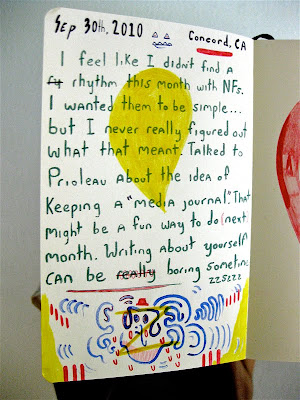 Sep 30th, 2010
Concord, CA
I feel like I didn't find a
rhythm this month with NFs.
I wanted them to be simple...
but I never really figured out
what that meant. Talked to
Prioleau about the idea of
Keeping a "media journal". That
might be a fun way to do (next)
month. Writing about yourself
can be really boring sometime
zzszzz